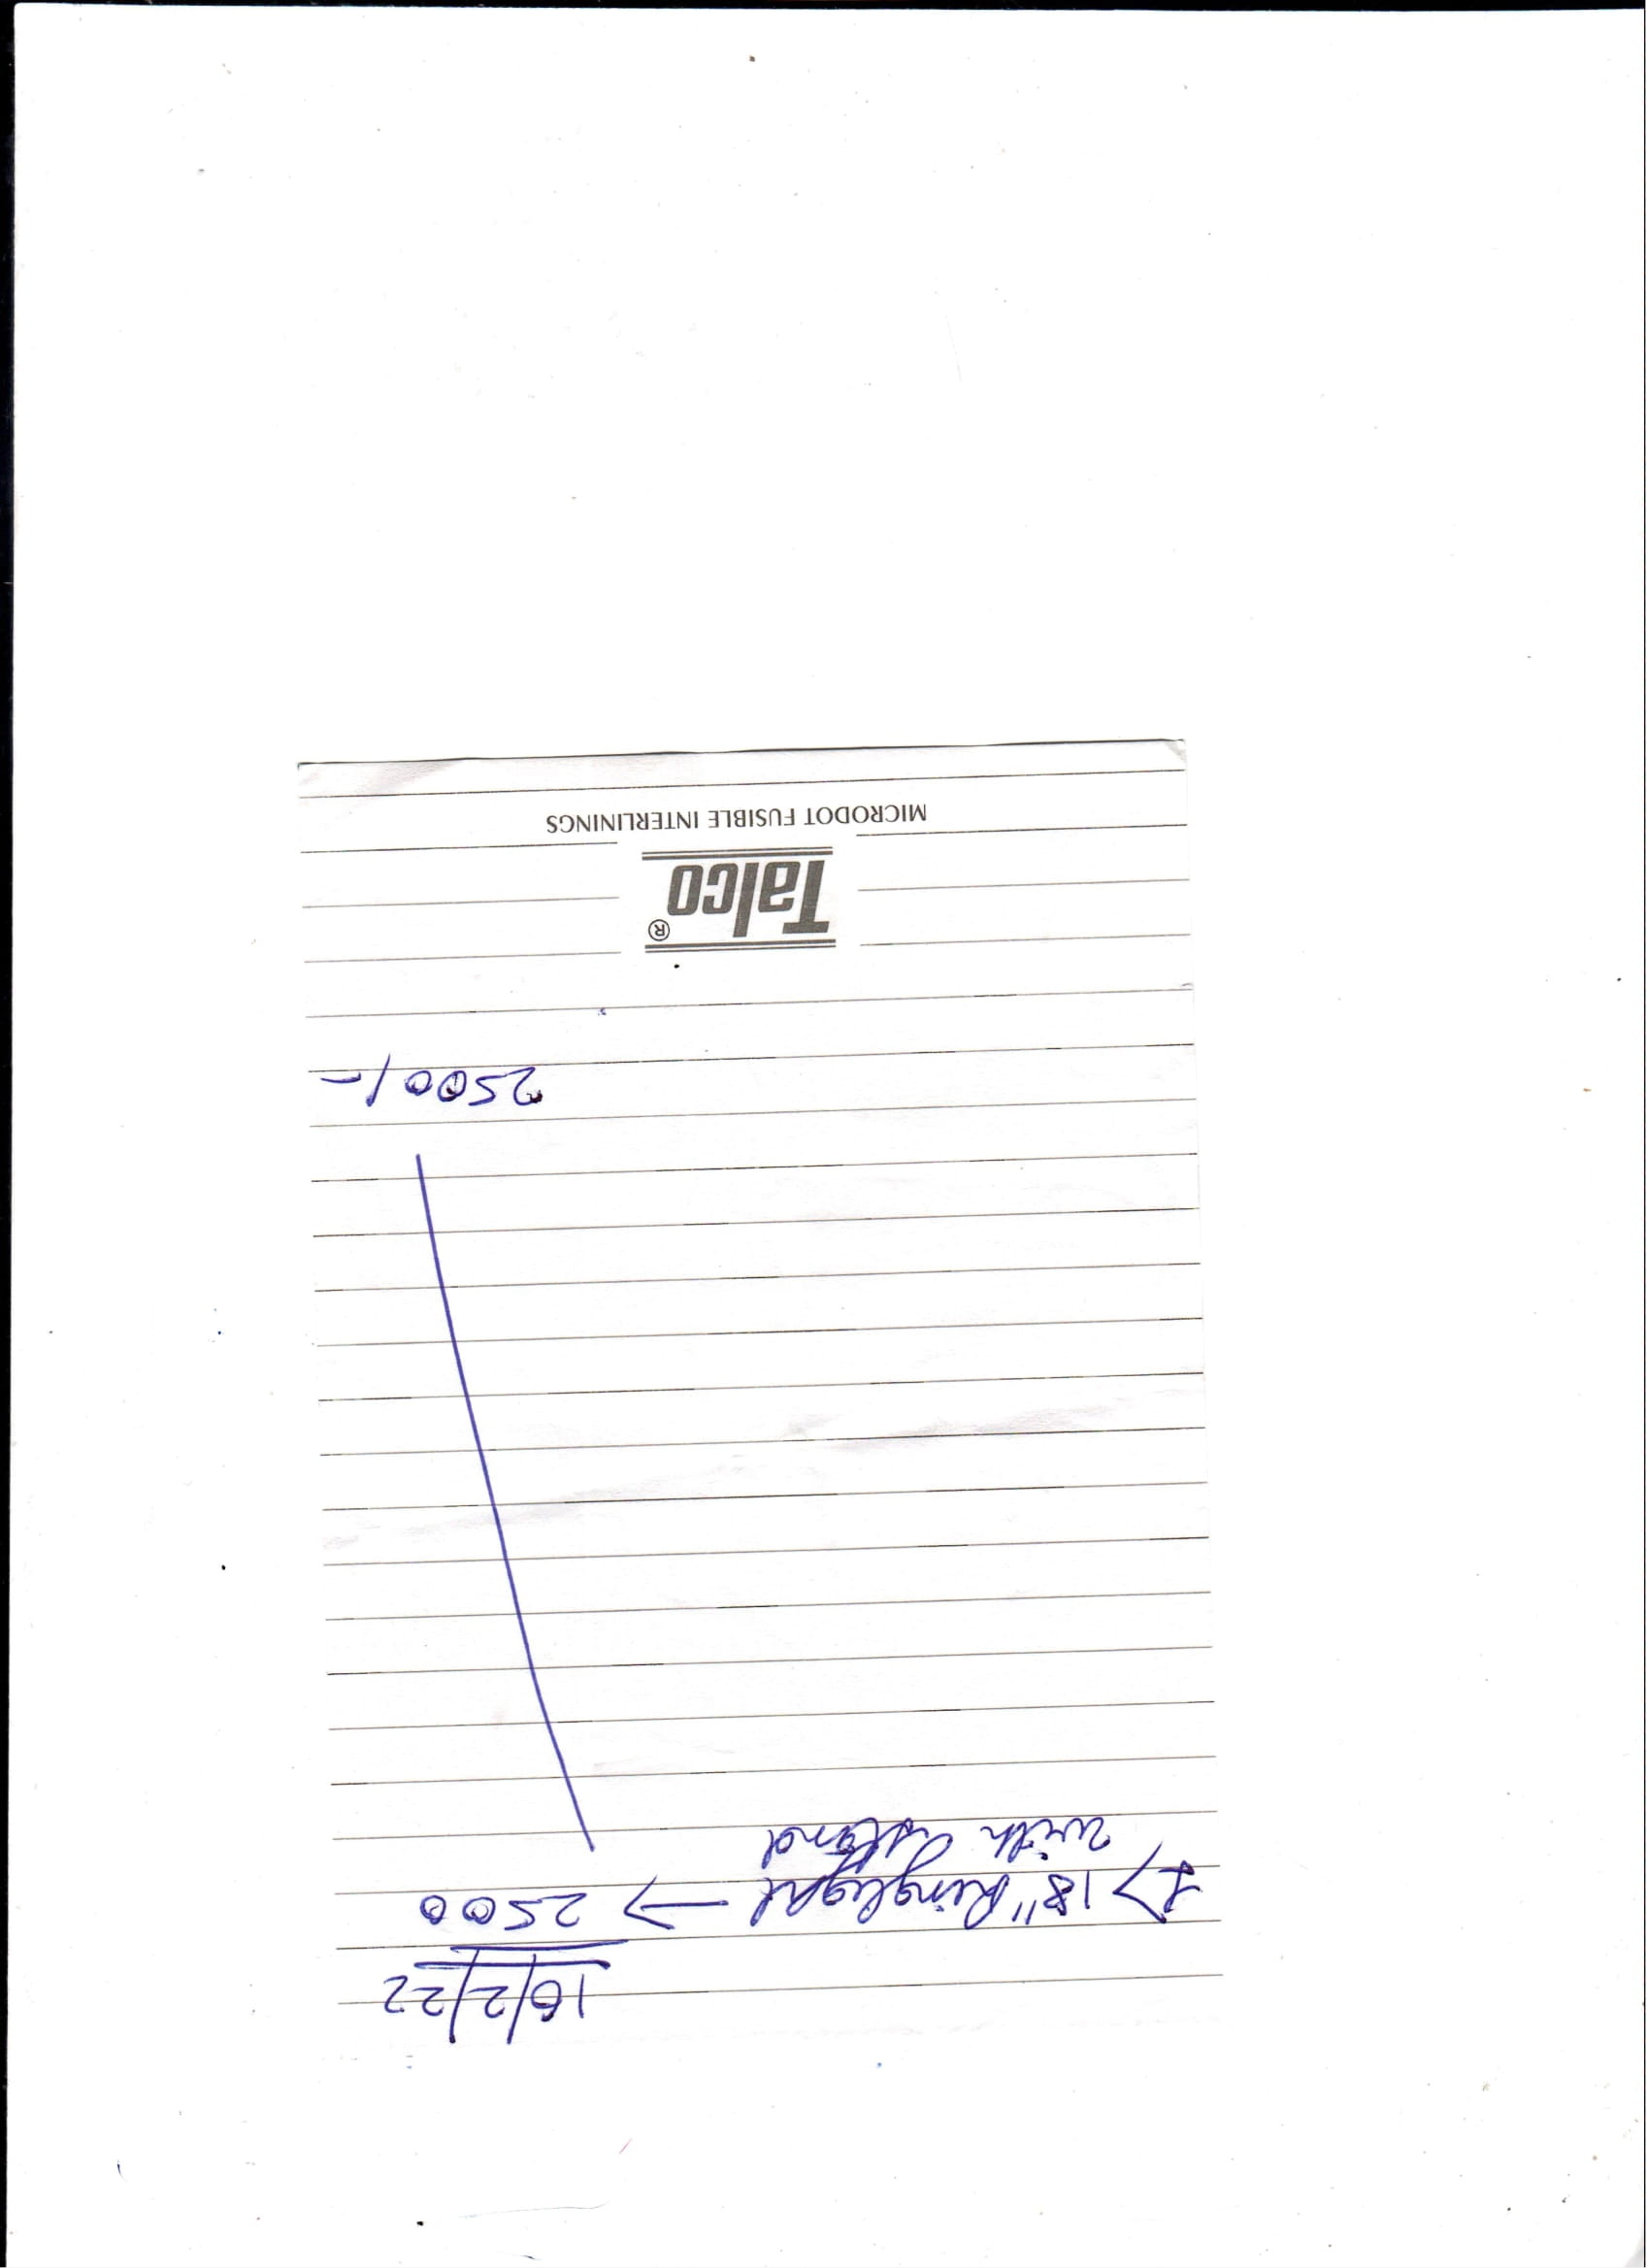 16/2/22
1> 18" Ringlight → 2500
with stand
2500/-
Talco®
MICRODOT FUSIBLE INTERLININGS